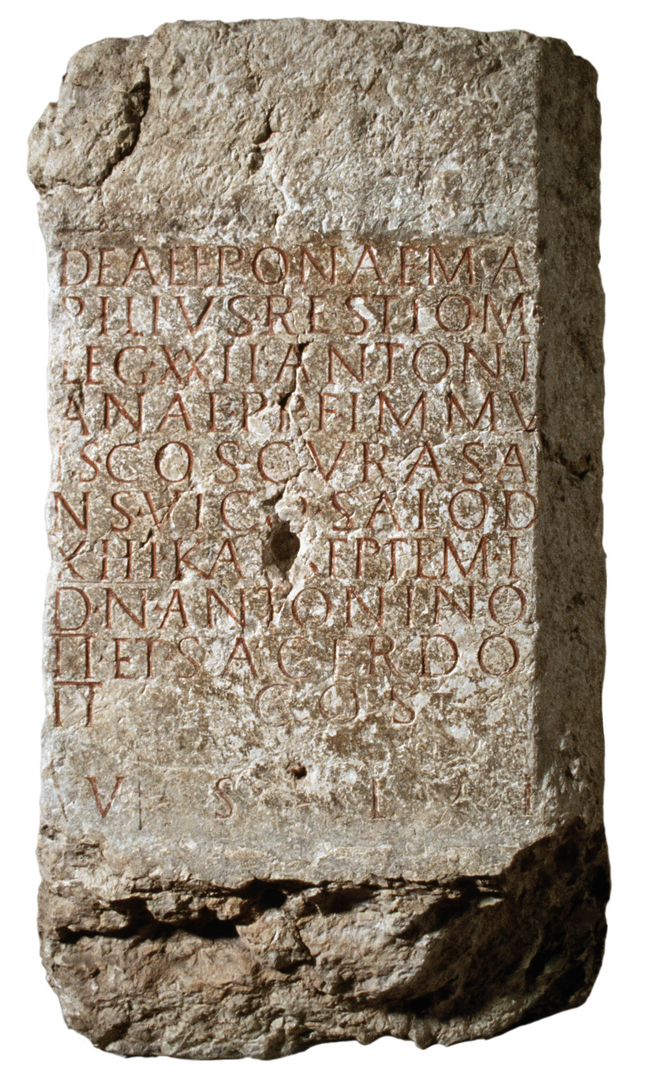 DEAE EPONAE MA
PILIVS·RESTIO·M
LEG XXII·ANTONI
ANAE P P F IMMV
IS COS·CVRAS A
NS VICO SALOD
XIIII KAL SEPTEM
D·N·ANTONINO
II·ET SACERDO
II COS
V S L